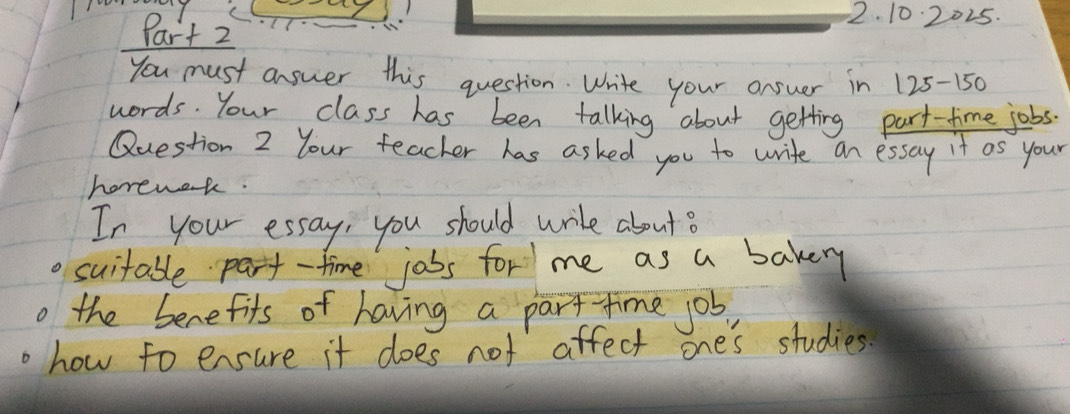 essay
2.10.2025.
Part 2
You must answer this question. Write your answer in 125-150
words. Your class has been talking about getting part-time jobs.
Question 2 Your teacher has asked you to write an essay it as your
homework.
In your essay, you should write about:
• suitable part-time jobs for me as a bakery
• the benefits of having a part-time job
• how to ensure it does not affect one's studies.